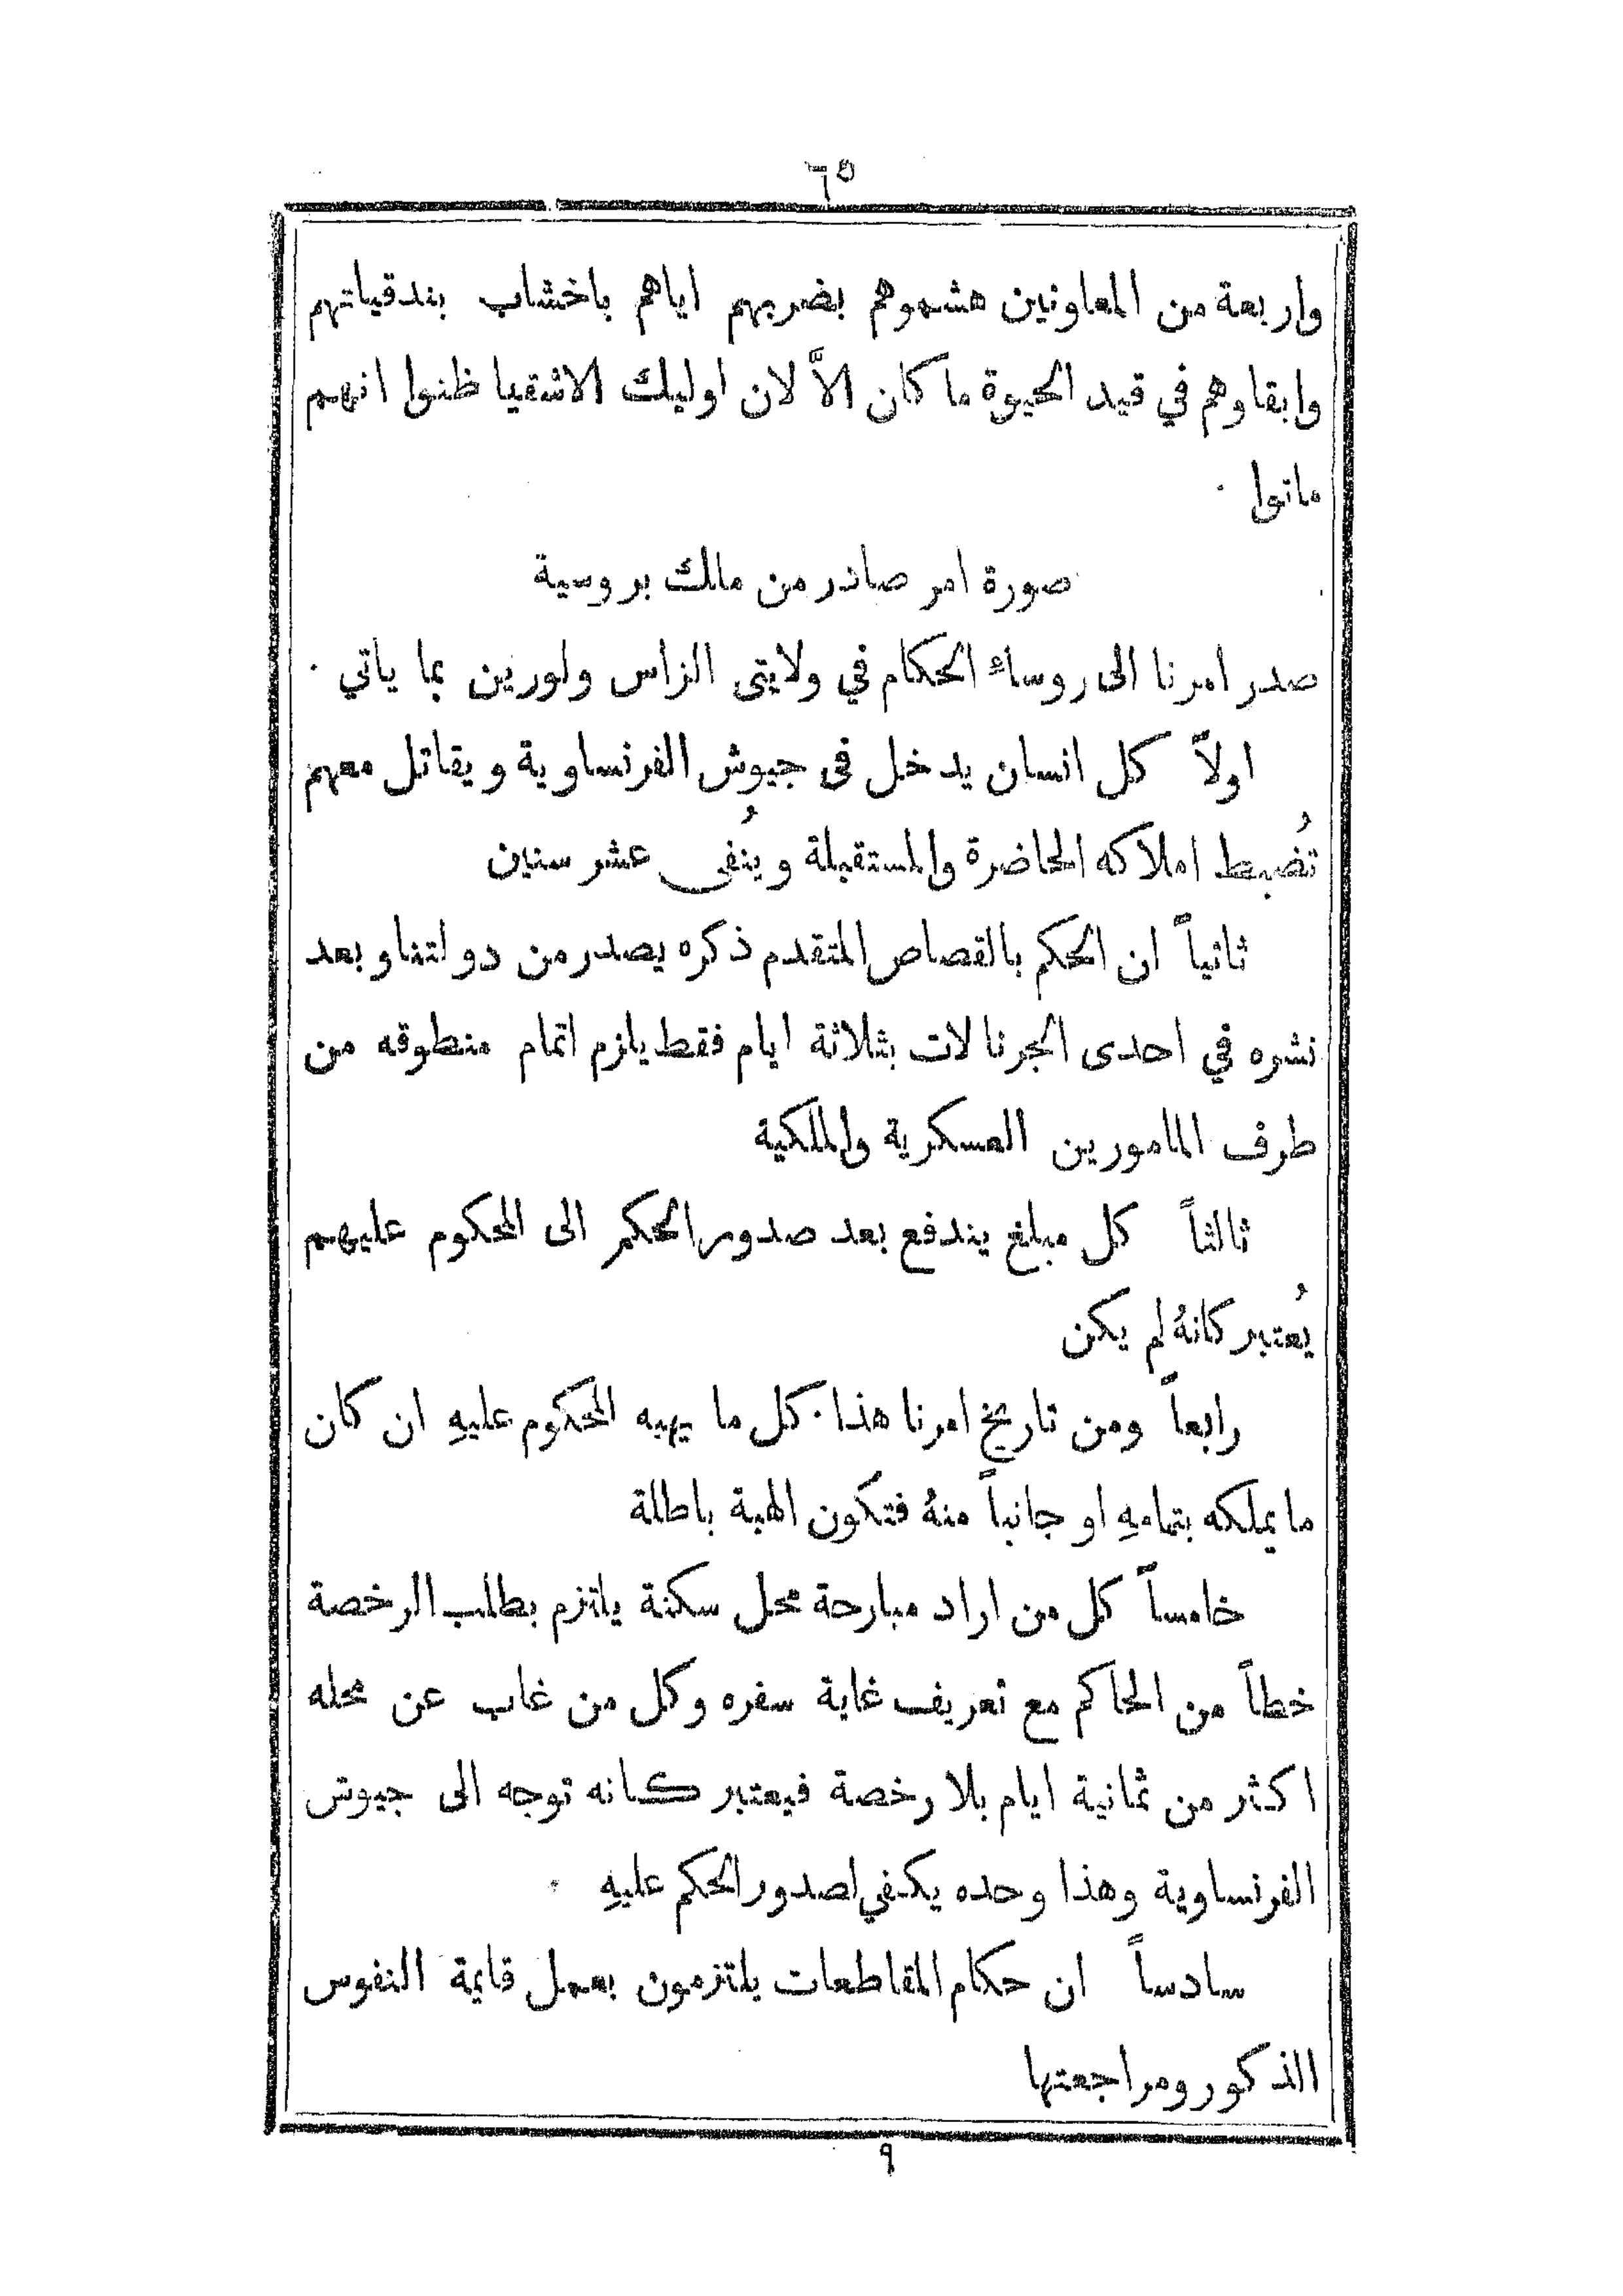 ٦٥
واربعة من المعاونين هشموهم بضربهم اياهم باخشاب بندقياتهم
وابقاوهم في قيد الحيوة ما كان الاَّ لان اوليك الاشقيا ظنوا انهم
ماتوا ·
صورة امر صادر من ملك بروسية
صدر امرنا الى روساء الحكام في ولايتى الزاس ولورين بما ياتي ·
اولاً كل انسان يدخل فى جيوش الفرنساوية ويقاتل معهم
تُضبط املاكه الحاضرة والمستقبلة ويُنفى عشر سنين
ثانياً ان الحكم بالقصاص المتقدم ذكره يصدر من دولتنا وبعد
نشره في احدى الجرنالات بثلاثة ايام فقط يلزم اتمام منطوقه من
طرف المامورين العسكرية والملكية
ثالثاً كل مبلغ يندفع بعد صدور الحكم الى المحكوم عليهم
يُعتبر كانهُ لم يكن
رابعاً ومن تاريخ امرنا هذا · كل ما يهبه المحكوم عليهِ ان كان
ما يملكه بتمامهِ او جانباً منهُ فتكون الهبة باطلة
خامساً كل من اراد مبارحة محل سكنة يلتزم بطلب الرخصة
خطاً من الحاكم مع تعريف غاية سفره وكل من غاب عن محله
اكثر من ثمانية ايام بلا رخصة فيعتبر كانه توجه الى جيوش
الفرنساوية وهذا وحده يكفي لصدور الحكم عليهِ ·
سادساً ان حكام المقاطعات يلتزمون بعمل قايمة النفوس
الذكور ومراجعتها
٩